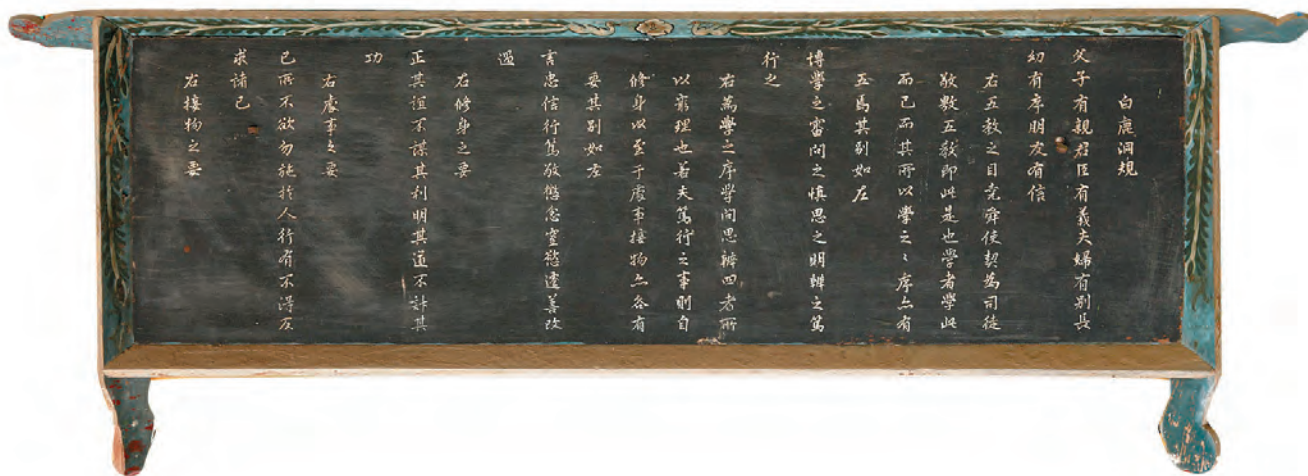 白鹿洞規
父子有親君臣有義夫婦有別長
幼有序朋友有信
右五敎之目堯舜使契爲司徒
敬敷五敎即此是也學者學此
而已而其所以學之〻序亦有
五焉其別如左
博學之審問之愼思之明辨之篤
行之
右爲學之序學問思辨四者所
以窮理也若夫篤行之事則自
修身以至于處事接物亦各有
要其別如左
言忠信行篤敬懲忿窒慾遷善改
過
右修身之要
正其誼不謀其利明其道不計其
功
右處事之要
己所不欲勿施於人行有不得反
求諸己
右接物之要